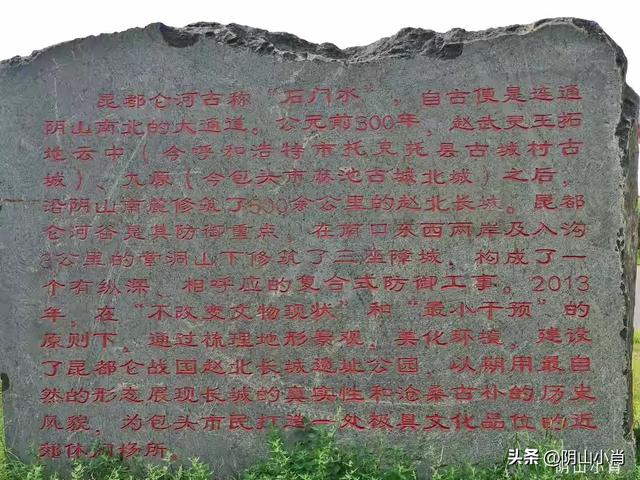 昆都仑河古称“石门水”，自古便是连通
阴山南北的大通道。公元前300年，赵武灵王拓
地云中（今呼和浩特市托克托县古城村古
城）、九原（今包头市麻池古城北城）之后，
沿阴山南麓修筑了500余公里的赵北长城。昆都
仑河谷是其防御重点，在南口东西两岸及入沟
3公里的 洞山下修筑了三座障城，构成了一
个有纵深、相呼应的复合式防御工事。2013
年，在“不改变文物现状”和“最小干预”的
原则下，通过梳理地形景观，美化环境，建设
了昆都仑战国赵北长城遗址公园，以期用最自
然的形态展现长城的真实性和沧桑古朴的历史
风貌，为包头市民打造一处极具文化品位的近
郊休闲场所。
头条 @阴山小肖
阴山小肖